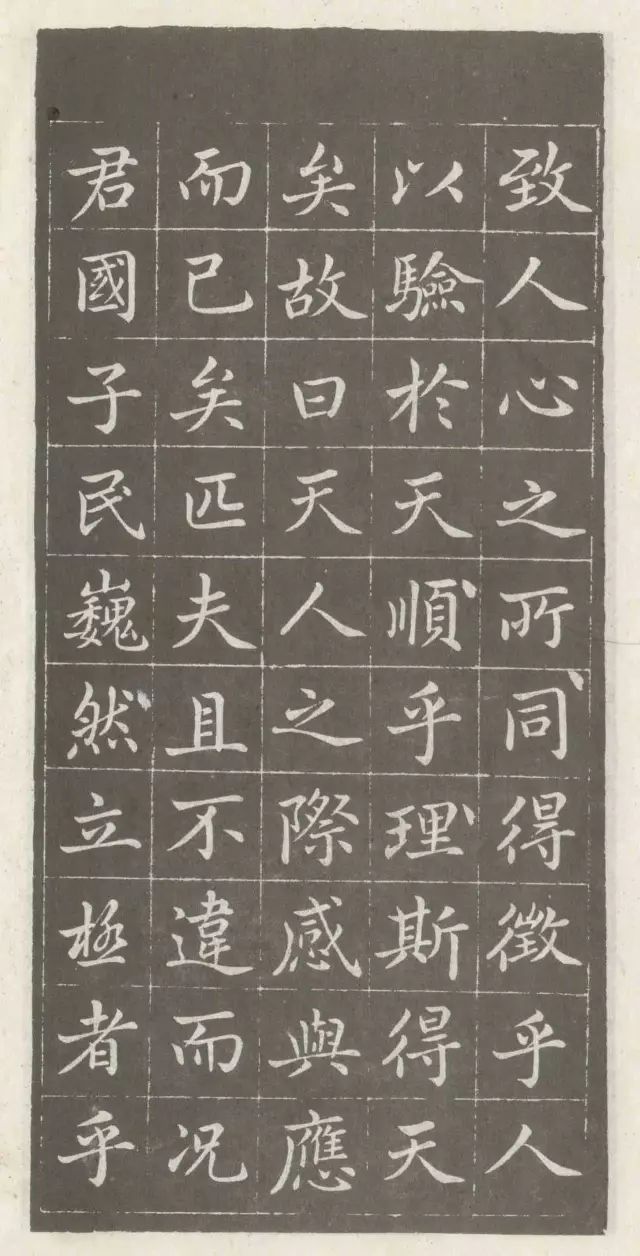 致人心之所同得徵乎人
以驗於天順乎理斯得天
矣故曰天人之際感與應
而已矣匹夫且不違而况
君國子民巍然立極者乎